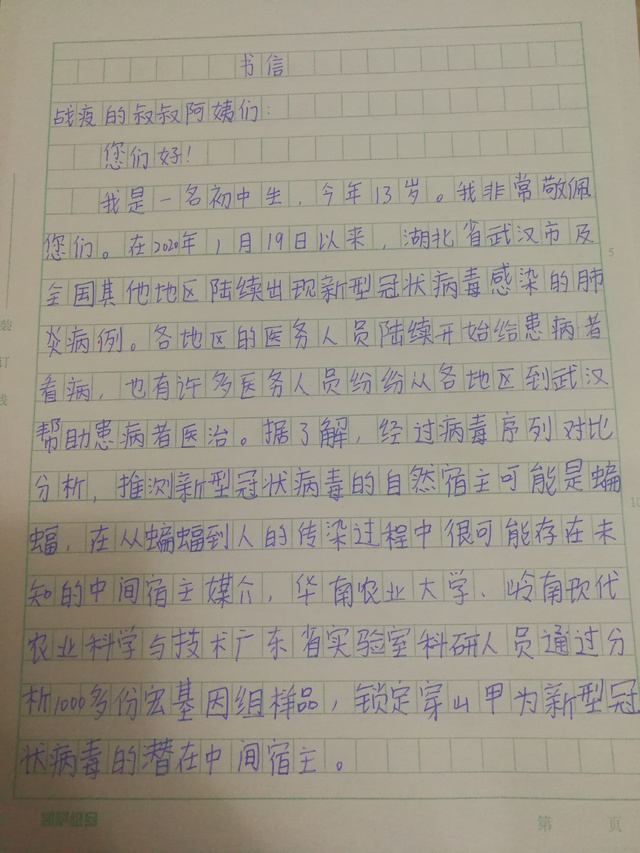 书信
战疫的叔叔阿姨们:
您们好!
我是一名初中生，今年13岁。我非常敬佩
您们。在2020年1月19日以来，湖北省武汉市及
全国其他地区陆续出现新型冠状病毒感染的肺
炎病例。各地区的医务人员陆续开始给患病者
看病，也有许多医务人员纷纷从各地区到武汉
帮助患病者医治。据了解，经过病毒序列对比
分析，推测新型冠状病毒的自然宿主可能是蝙
蝠，在从蝙蝠到人的传染过程中很可能存在未
知的中间宿主媒介，华南农业大学、岭南现代
农业科学与技术广东省实验室科研人员通过分
析1000多份宏基因组样品，锁定穿山甲为新型冠
状病毒的潜在中间宿主。
5
装
订
线
10
第 页